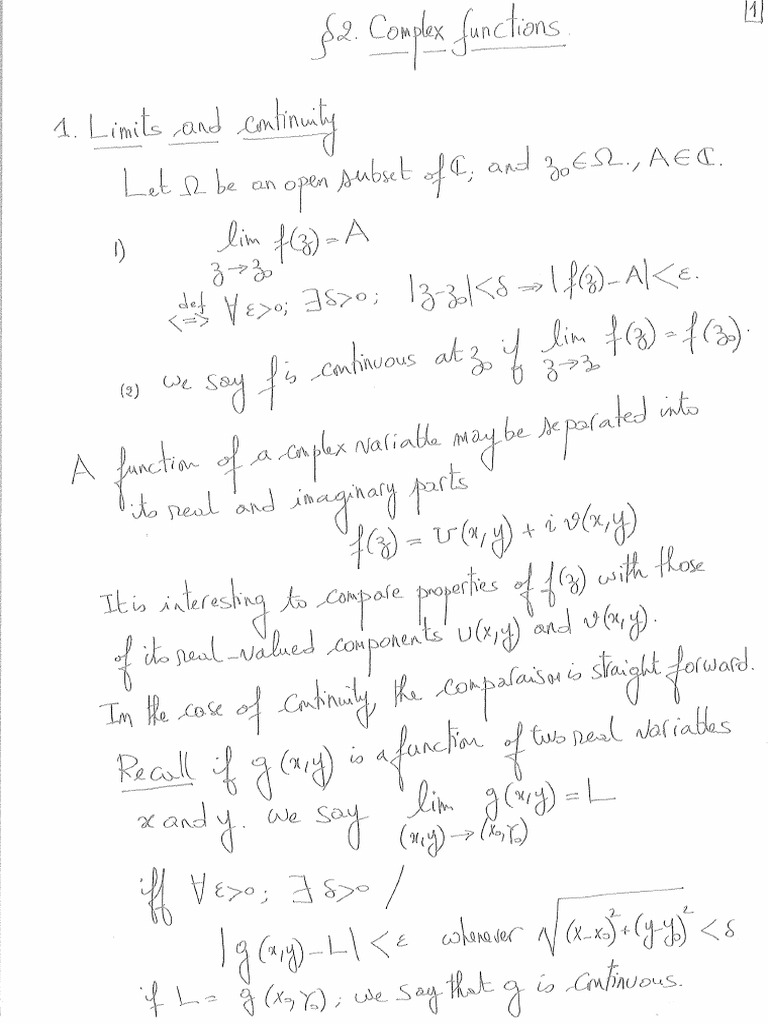 1
§2. Complex functions.
1. Limits and continuity
Let Ω be an open subset of ℂ, and z₀∈Ω., A∈ℂ.
1) lim f(z) = A
z→z₀
def
<=> ∀ε>0; ∃δ>0; |z-z₀|<δ ⇒ |f(z)-A|<ε.
(2) we say f is continuous at z₀ if lim f(z) = f(z₀).
z→z₀
A function of a complex variable may be separated into
its real and imaginary parts
f(z) = U(x,y) + i v(x,y)
It is interesting to compare properties of f(z) with those
of its real-valued components U(x,y) and v(x,y).
In the case of continuity, the comparaison is straight forward.
Recall if g(x,y) is a function of two real variables
x and y. we say lim g(x,y) = L
(x,y)→(x₀,y₀)
iff ∀ε>0; ∃δ>0 /
|g(x,y)-L|<ε whenever √(x-x₀)²+(y-y₀)² <δ
if L = g(x₀,y₀), we say that g is continuous.